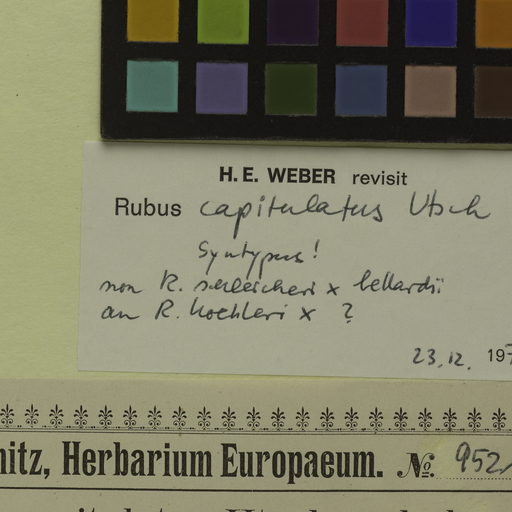 H. E. WEBER revisit
Rubus capitulatus Utsch
Syntypus!
non R. schleicheri x bellardii
an R. koehleri x ?
23.12. 197
nitz, Herbarium Europaeum. No. 952